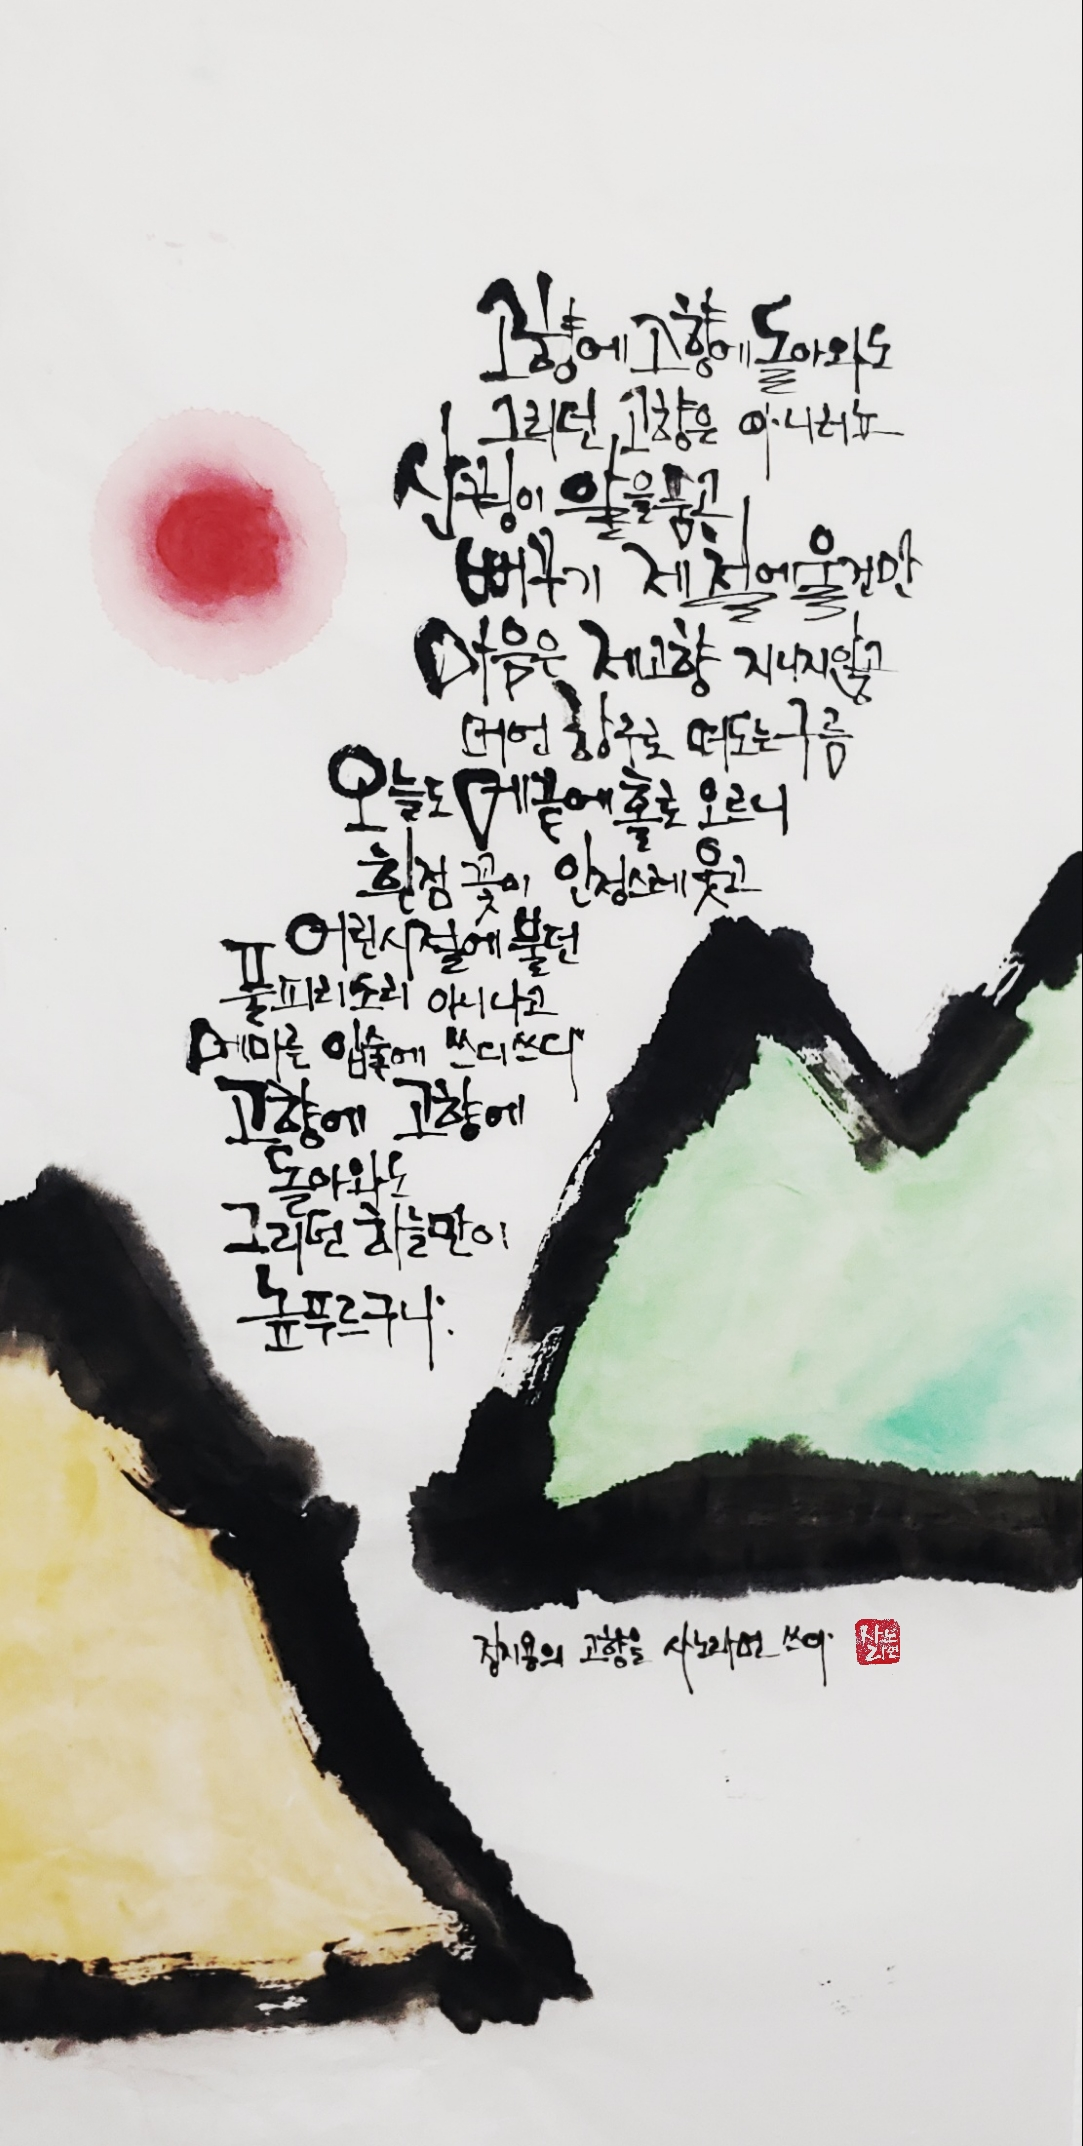 고향에 고향에 돌아와도
그리던 고향은 아니러뇨
산꿩이 알을 품고
뻐꾸기 제철에 울건만
마음은 제고향 지니지않고
머언 항구로 떠도는구름
오늘도 메끝에 홀로 오르니
흰점 꽃이 인정스레 웃고
어린시절에 불던
풀피리소리 아니나고
메마른 입술에 쓰디쓰다
고향에 고향에
돌아와도
그리던 하늘만이
높푸르구나.
정지용의 고향을 사노라면 쓰다
사노라면